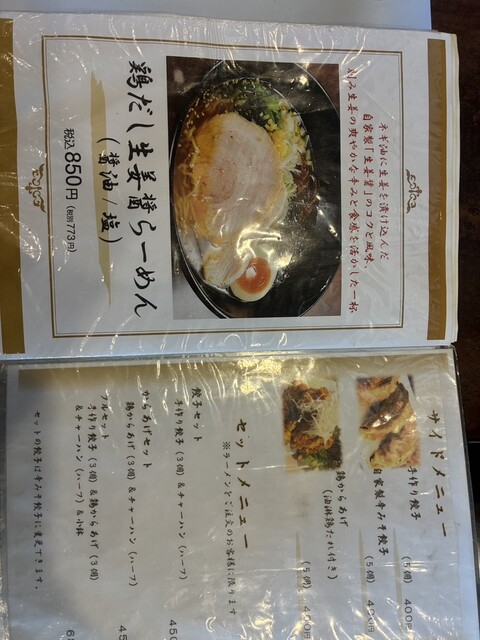 ネギ油に生姜を漬け込んだ
自家製「生姜醤」のコクと風味、
刻み生姜の爽やかな辛みと食感を活かした一杯
鶏だし生姜醤らーめん
(醤油/塩)
税込850円(税別773円)
サイドメニュー
手作り餃子 (5個) 400円
自家製辛みそ餃子 (5個) 400円
鶏からあげ (5個) 400円
(油淋鶏たれ付き)
セットメニュー
※ラーメンをご注文のお客様に限ります
餃子セット
手作り餃子(3個)&チャーハン(ハーフ) 450
からあげセット
鶏からあげ(3個)&チャーハン(ハーフ) 450
フルセット
手作り餃子(3個)&鶏からあげ(3個)
&チャーハン(ハーフ)&小鉢
セットの餃子は辛みそ餃子に変更できます。